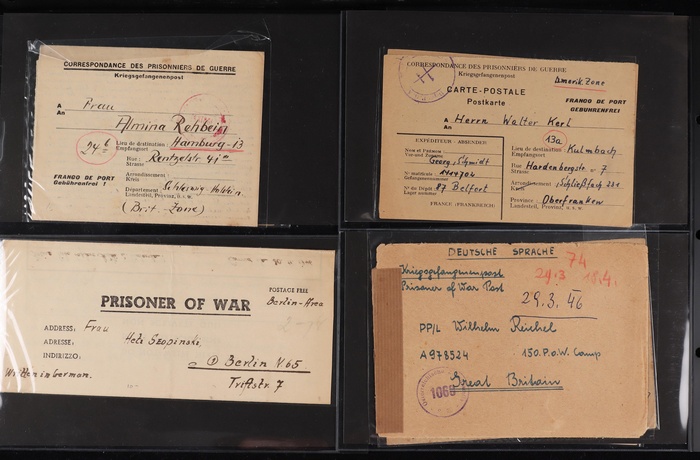 CORRESPONDANCE DES PRISONNIERS DE GUERRE
Kriegsgefangenenpost
A
An
Frau
Almina Rehbein
24 b
Lieu de destination:
Empfangsort
Hamburg-13
Rue:
Strasse
Rentzelstr
Arrondissement:
Kreis
FRANCO DE PORT
Gebührenfrei !
Département:
Landesteil, Provinz, u. s. w.
Schleswig-Holstein
(Brit. Zone)
CORRESPONDANCE DES PRISONNIERS DE GUERRE
Kriegsgefangenenpost
Amerik. Zone
CARTE-POSTALE
Postkarte
FRANCO DE PORT
GEBÜHRENFREI
A
An
Herrn Walter Kerl
13a
EXPÉDITEUR - ABSENDER
Nom et Prénom
Vor-und Zuname
Georg Schmidt
N° matricule
Gefangenennummer
1117704
N° du Dépôt
Lager nummer
87 Belfort
FRANCE (FRANKREICH)
Lieu de destination:
Empfangsort
Kulmbach
Rue:
Strasse
Hardenbergstr. 7
Arrondissement
Kreis
Schließfach 221
Province
Landesteil, Provinz, u. s. w.
Oberfranken
PRISONER OF WAR
POSTAGE FREE
Berlin-Area
ADDRESS:
ADRESSE:
INDIRIZZO:
Frau
Szopinski
Berlin N 65
Triftstr. 7
Written in German.
DEUTSCHE SPRACHE
74
Kriegsgefangenenpost
Prisoner of War Post
29.3
18.4.
29.3.46
PP/L Wilhelm Reichel
A978524
150. P.o.W. Camp
Great Britain
1069